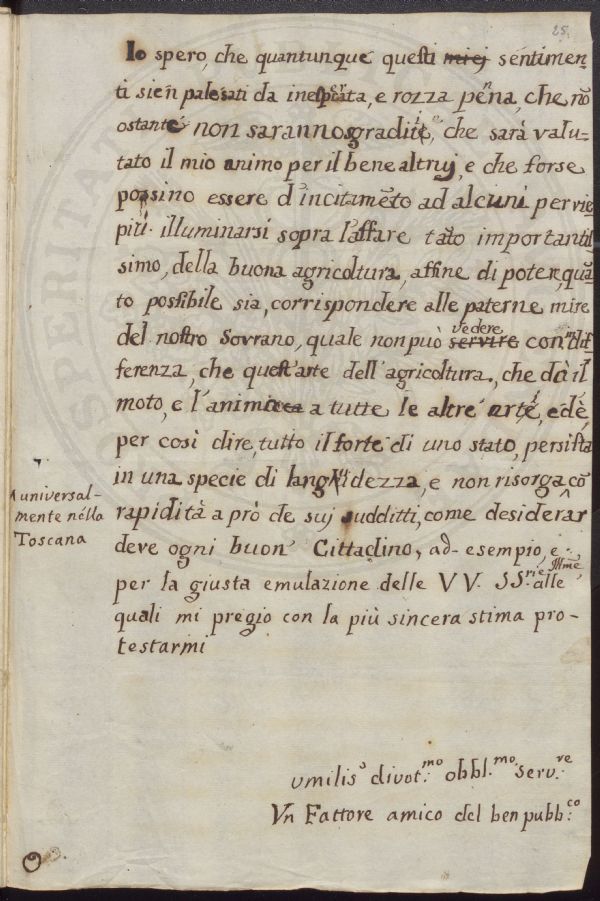 25.
Io spero, che quantunque questi miej sentimen-
ti sien palesati da inesperta, e rozza penna, che nō
ostante non saranno sgraditi, che sarà valu-
tato il mio animo per il bene altruj, e che forse
possino essere d'incitamēto ad alcuni per vie
più illuminarsi sopra l'affare tāto importantis
simo, della buona agricoltura, affine di poter, quā
to possibile sia, corrispondere alle paterne mire
del nostro Sovrano, quale non può servire vedere con indif
ferenza, che quest'arte dell'agricoltura, che dà il
moto, e l'anima a tutte le altre arti, ed è,
per cosi dire, tutto il forte di uno stato, persista
in una specie di languidezza, e non risorga cō
universal-
mente nella
Toscana
rapidità a prò de suj sudditti, come desiderar
deve ogni buon Cittadino, ad esempio, e
per la giusta emulazione delle VV. SS.rie Illme, alle
quali mi pregio con la più sincera stima pro-
testarmi
umilis.o divot.mo obbl.mo serv.re
Un Fattore amico del ben pubb.co